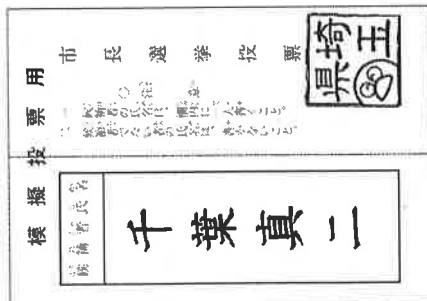 模擬投票用
市長選挙投票
◎注意
一 候補者の氏名は、欄内に一人書くこと。
二 候補者でない者の氏名は、書かないこと。
埼玉県
候補者氏名
千葉真二